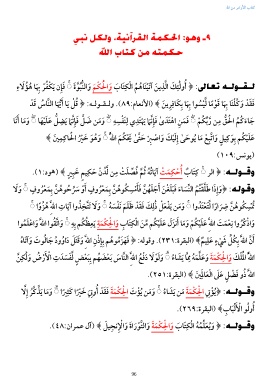 ٩- وهو: الحكمة القرآنية، ولكل نبي
حكمته من كتاب الله
لـقـولـه تعالى: ﴿ أُولَٰئِكَ الَّذِينَ آتَيْنَاهُمُ الْكِتَابَ وَالْحُكْمَ وَالنُّبُوَّةَ ۚ فَإِن يَكْفُرْ بِهَا هَٰؤُلَاءِ
فَقَدْ وَكَّلْنَا بِهَا قَوْمًا لَّيْسُوا بِهَا بِكَافِرِينَ ﴾ (الأنعام:٨٩). ولـقـولـه: ﴿ قُلْ يَا أَيُّهَا النَّاسُ قَدْ
جَاءَكُمُ الْحَقُّ مِن رَّبِّكُمْ ۖ فَمَنِ اهْتَدَىٰ فَإِنَّمَا يَهْتَدِي لِنَفْسِهِ ۖ وَمَن ضَلَّ فَإِنَّمَا يَضِلُّ عَلَيْهَا ۖ وَمَا أَنَا
عَلَيْكُم بِوَكِيلٍ وَاتَّبِعْ مَا يُوحَىٰ إِلَيْكَ وَاصْبِرْ حَتَّىٰ يَحْكُمَ اللَّهُ ۚ وَهُوَ خَيْرُ الْحَاكِمِينَ ﴾
(يونس:١٠٩)
وقـولـه: ﴿ الر ۚ كِتَابٌ أُحْكِمَتْ آيَاتُهُ ثُمَّ فُصِّلَتْ مِن لَّدُنْ حَكِيمٍ خَبِيرٍ ﴾ (هود:١).
وقـولـه: ﴿وَإِذَا طَلَّقْتُمُ النِّسَاءَ فَبَلَغْنَ أَجَلَهُنَّ فَأَمْسِكُوهُنَّ بِمَعْرُوفٍ أَوْ سَرِّحُوهُنَّ بِمَعْرُوفٍ ۚ وَلَا
تُمْسِكُوهُنَّ ضِرَارًا لِّتَعْتَدُوا ۚ وَمَن يَفْعَلْ ذَٰلِكَ فَقَدْ ظَلَمَ نَفْسَهُ ۚ وَلَا تَتَّخِذُوا آيَاتِ اللَّهِ هُزُوًا ۚ
وَاذْكُرُوا نِعْمَتَ اللَّهِ عَلَيْكُمْ وَمَا أَنزَلَ عَلَيْكُم مِّنَ الْكِتَابِ وَالْحِكْمَةِ يَعِظُكُم بِهِ ۚ وَاتَّقُوا اللَّهَ وَاعْلَمُوا
أَنَّ اللَّهَ بِكُلِّ شَيْءٍ عَلِيمٌ﴾ (البقرة:٢٣١). وقوله: ﴿ فَهَزَمُوهُم بِإِذْنِ اللَّهِ وَقَتَلَ دَاوُودُ جَالُوتَ وَآتَاهُ
اللَّهُ الْمُلْكَ وَالْحِكْمَةَ وَعَلَّمَهُ مِمَّا يَشَاءُ ۗ وَلَوْلَا دَفْعُ اللَّهِ النَّاسَ بَعْضَهُم بِبَعْضٍ لَّفَسَدَتِ الْأَرْضُ وَلَٰكِنَّ
اللَّهَ ذُو فَضْلٍ عَلَى الْعَالَمِينَ ﴾ (البقرة:٢٥١).
وقـولـه: ﴿يُؤْتِي الْحِكْمَةَ مَن يَشَاءُ ۚ وَمَن يُؤْتَ الْحِكْمَةَ فَقَدْ أُوتِيَ خَيْرًا كَثِيرًا ۗ وَمَا يَذَّكَّرُ إِلَّا
أُولُو الْأَلْبَابِ﴾ (البقرة:٢٦٩).
وقـولـه: ﴿ وَيُعَلِّمُهُ الْكِتَابَ وَالْحِكْمَةَ وَالتَّوْرَاةَ وَالْإِنجِيلَ ﴾ (آل عمران:٤٨).